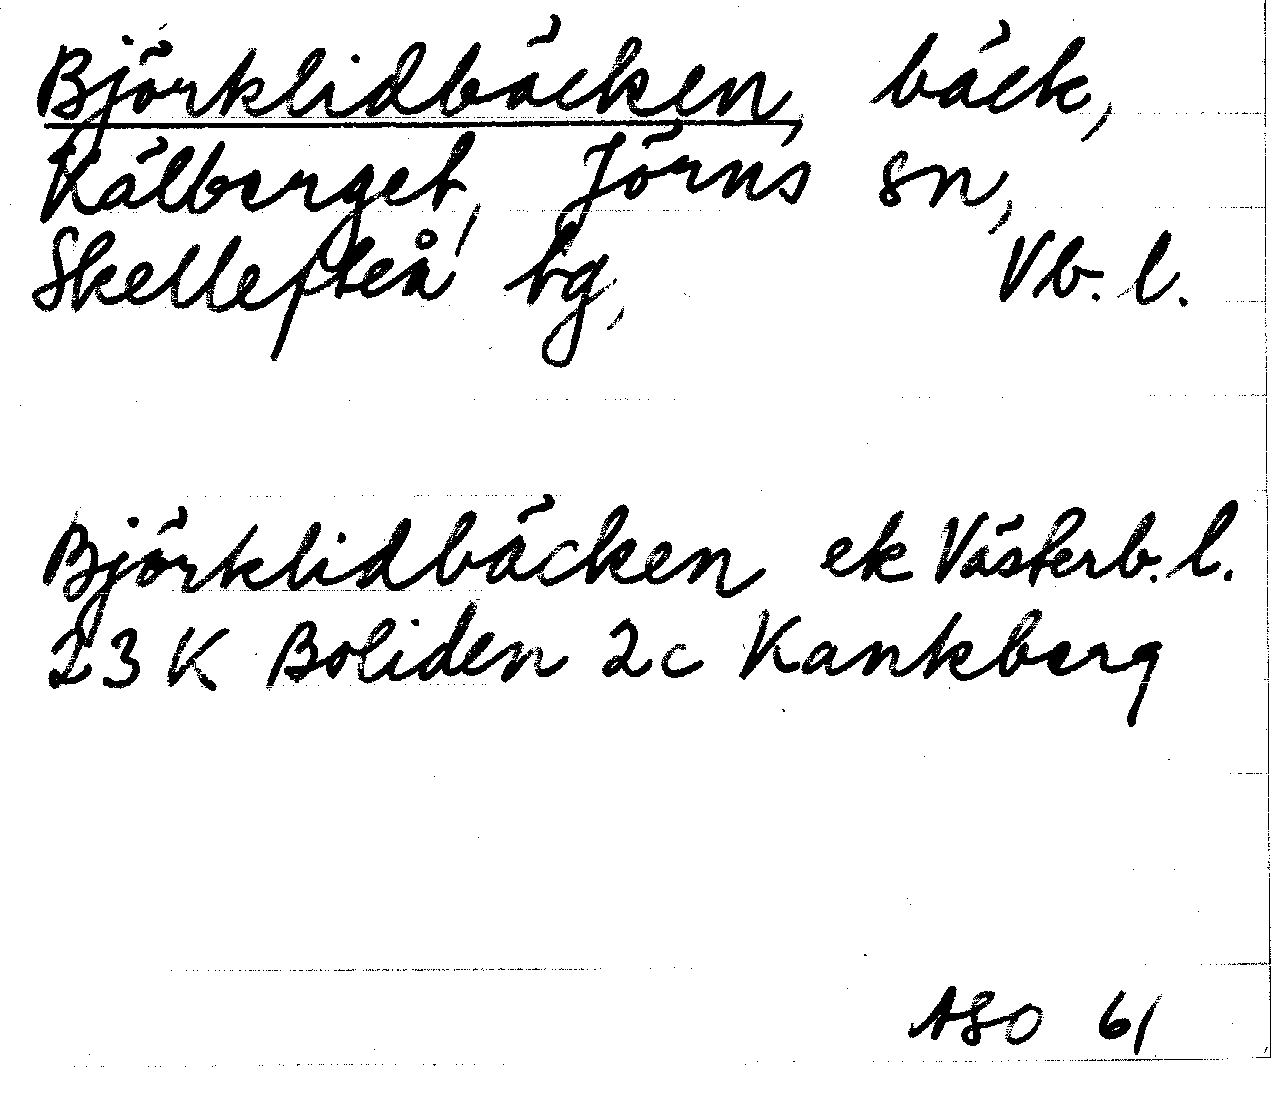 Björklidbäcken, bäck,
Kälberget, Jörns sn,
Skellefteå tg, Vb. l.
Björklidbäcken ek Västerb. l.
23 K Boliden 2c Kankberg
ASO 61